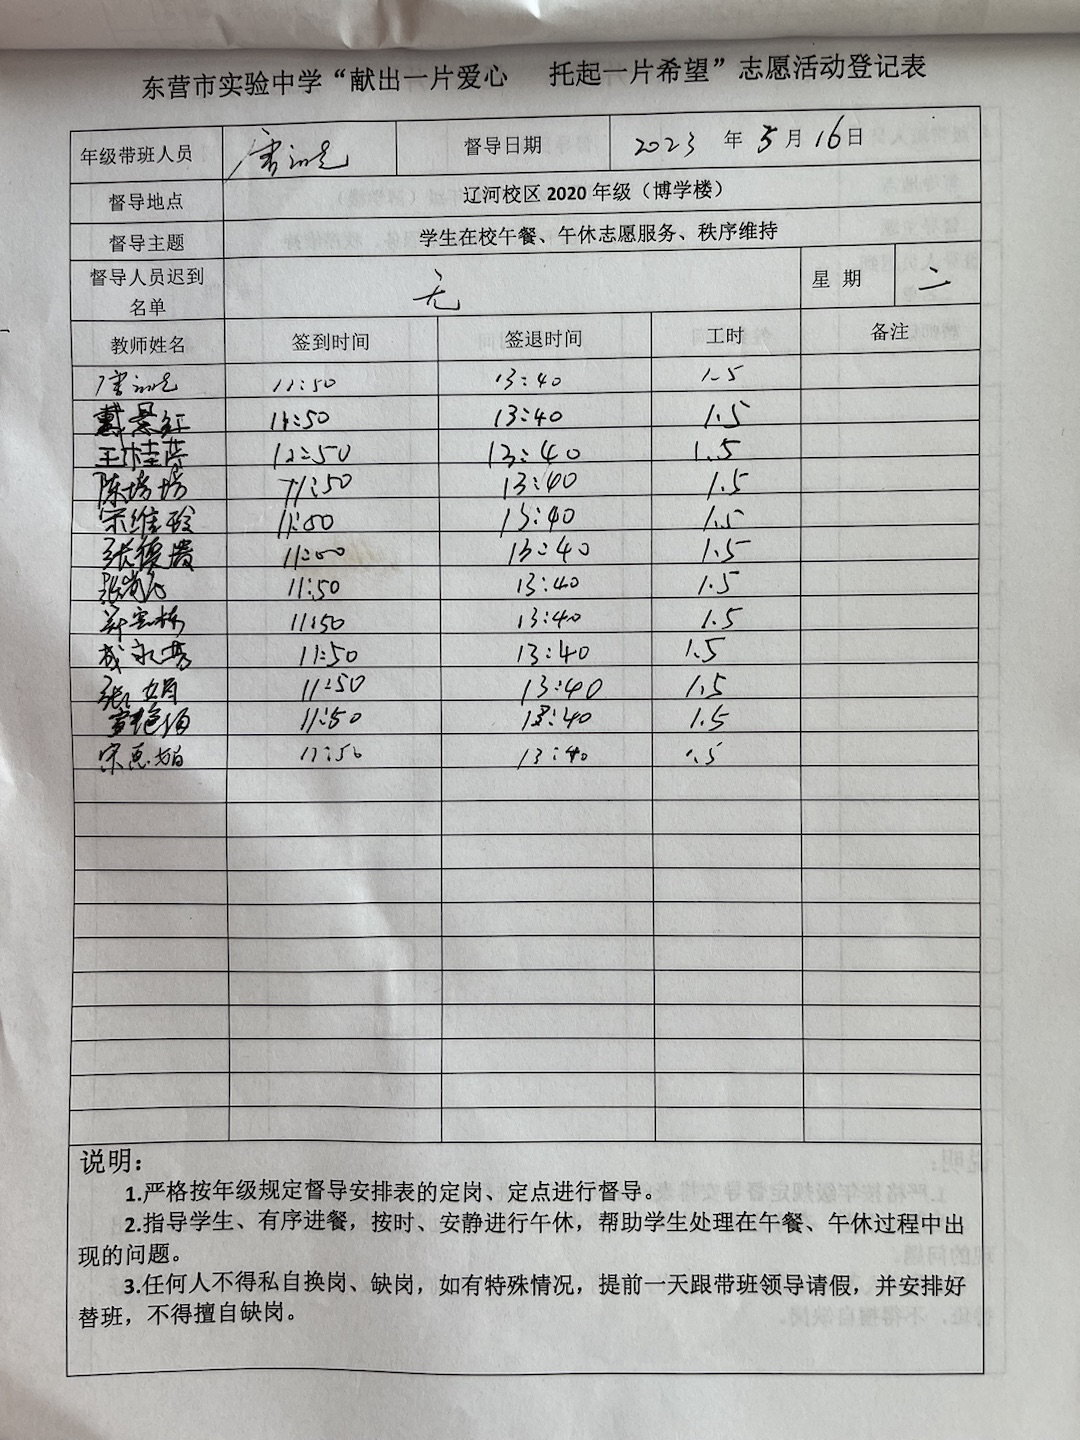 东营市实验中学“献出一片爱心 托起一片希望”志愿活动登记表
年级带班人员 督导日期 2023 年 5 月 16 日
督导地点 辽河校区 2020 年级（博学楼）
督导主题 学生在校午餐、午休志愿服务、秩序维持
督导人员迟到名单 无 星 期 二
教师姓名 签到时间 签退时间 工时 备注
11:50 13:40 1.5
戴景红 11:50 13:40 1.5
王桂芹 13:40 1.5
陈培培 11:50 13:40 1.5
宋维玲 11:50 13:40 1.5
张德贵 13:40 1.5
11:50 13:40 1.5
11:50 13:40 1.5
成永芳 11:50 13:40 1.5
张娟 11:50 13:40 1.5
11:50 13:40 1.5
宋惠娟 11:50 13:40 1.5
说明：
1.严格按年级规定督导安排表的定岗、定点进行督导。
2.指导学生、有序进餐，按时、安静进行午休，帮助学生处理在午餐、午休过程中出
现的问题。
3.任何人不得私自换岗、缺岗，如有特殊情况，提前一天跟带班领导请假，并安排好
替班，不得擅自缺岗。